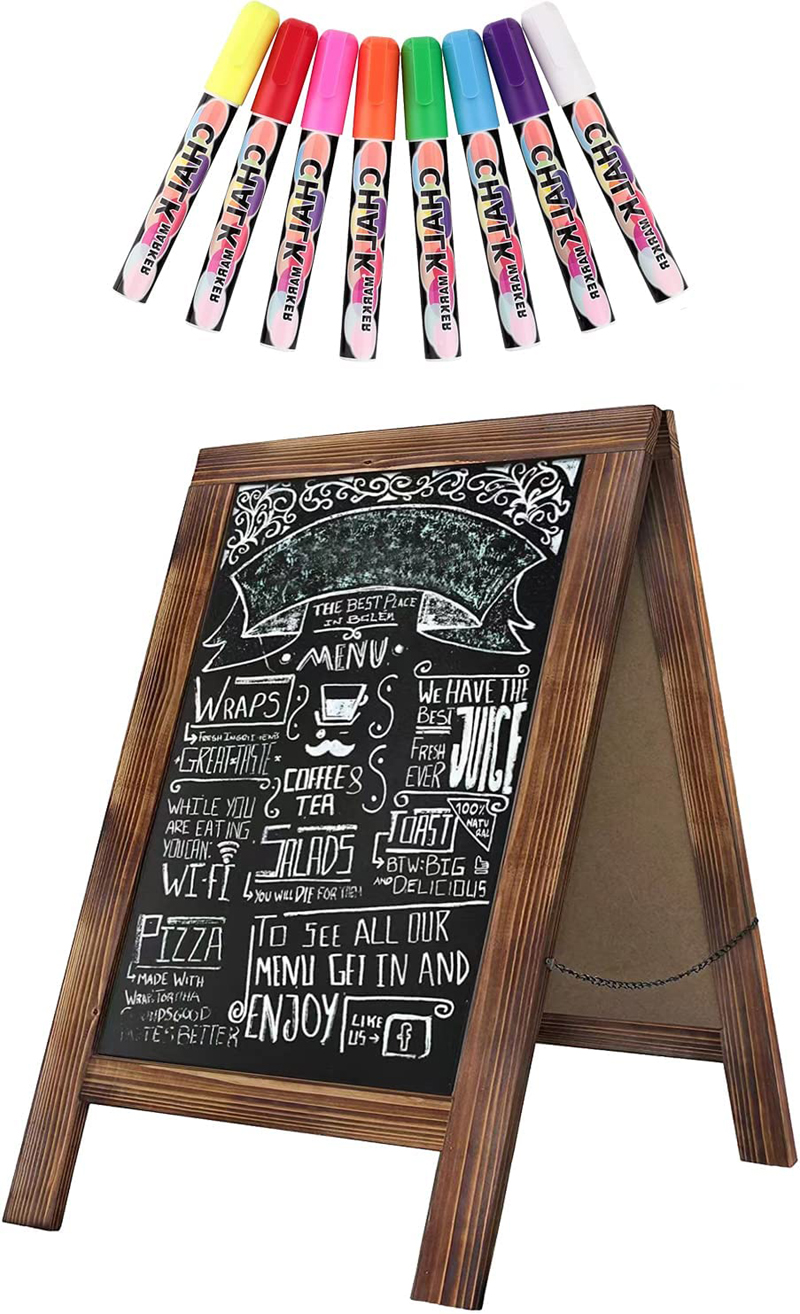 CHALK MARKER
CHALK MARKER
CHALK MARKER
CHALK MARKER
CHALK MARKER
CHALK MARKER
CHALK MARKER
CHALK MARKER
THE BEST PLACE
IN
MENU
WRAPS
FRESH
GREAT TASTE
WHILE YOU
ARE EATING
YOU CAN:
WI-FI
COFFEE &
TEA
SALADS
YOU WILL DIE FOR THEM
WE HAVE THE
BEST
JUICE
FRESH
EVER
TOAST
100%
NATU
RAL
BTW: BIG
AND DELICIOUS
PIZZA
MADE WITH
GOOD
BETTER
TO SEE ALL OUR
MENU GET IN AND
ENJOY
LIKE
US
f